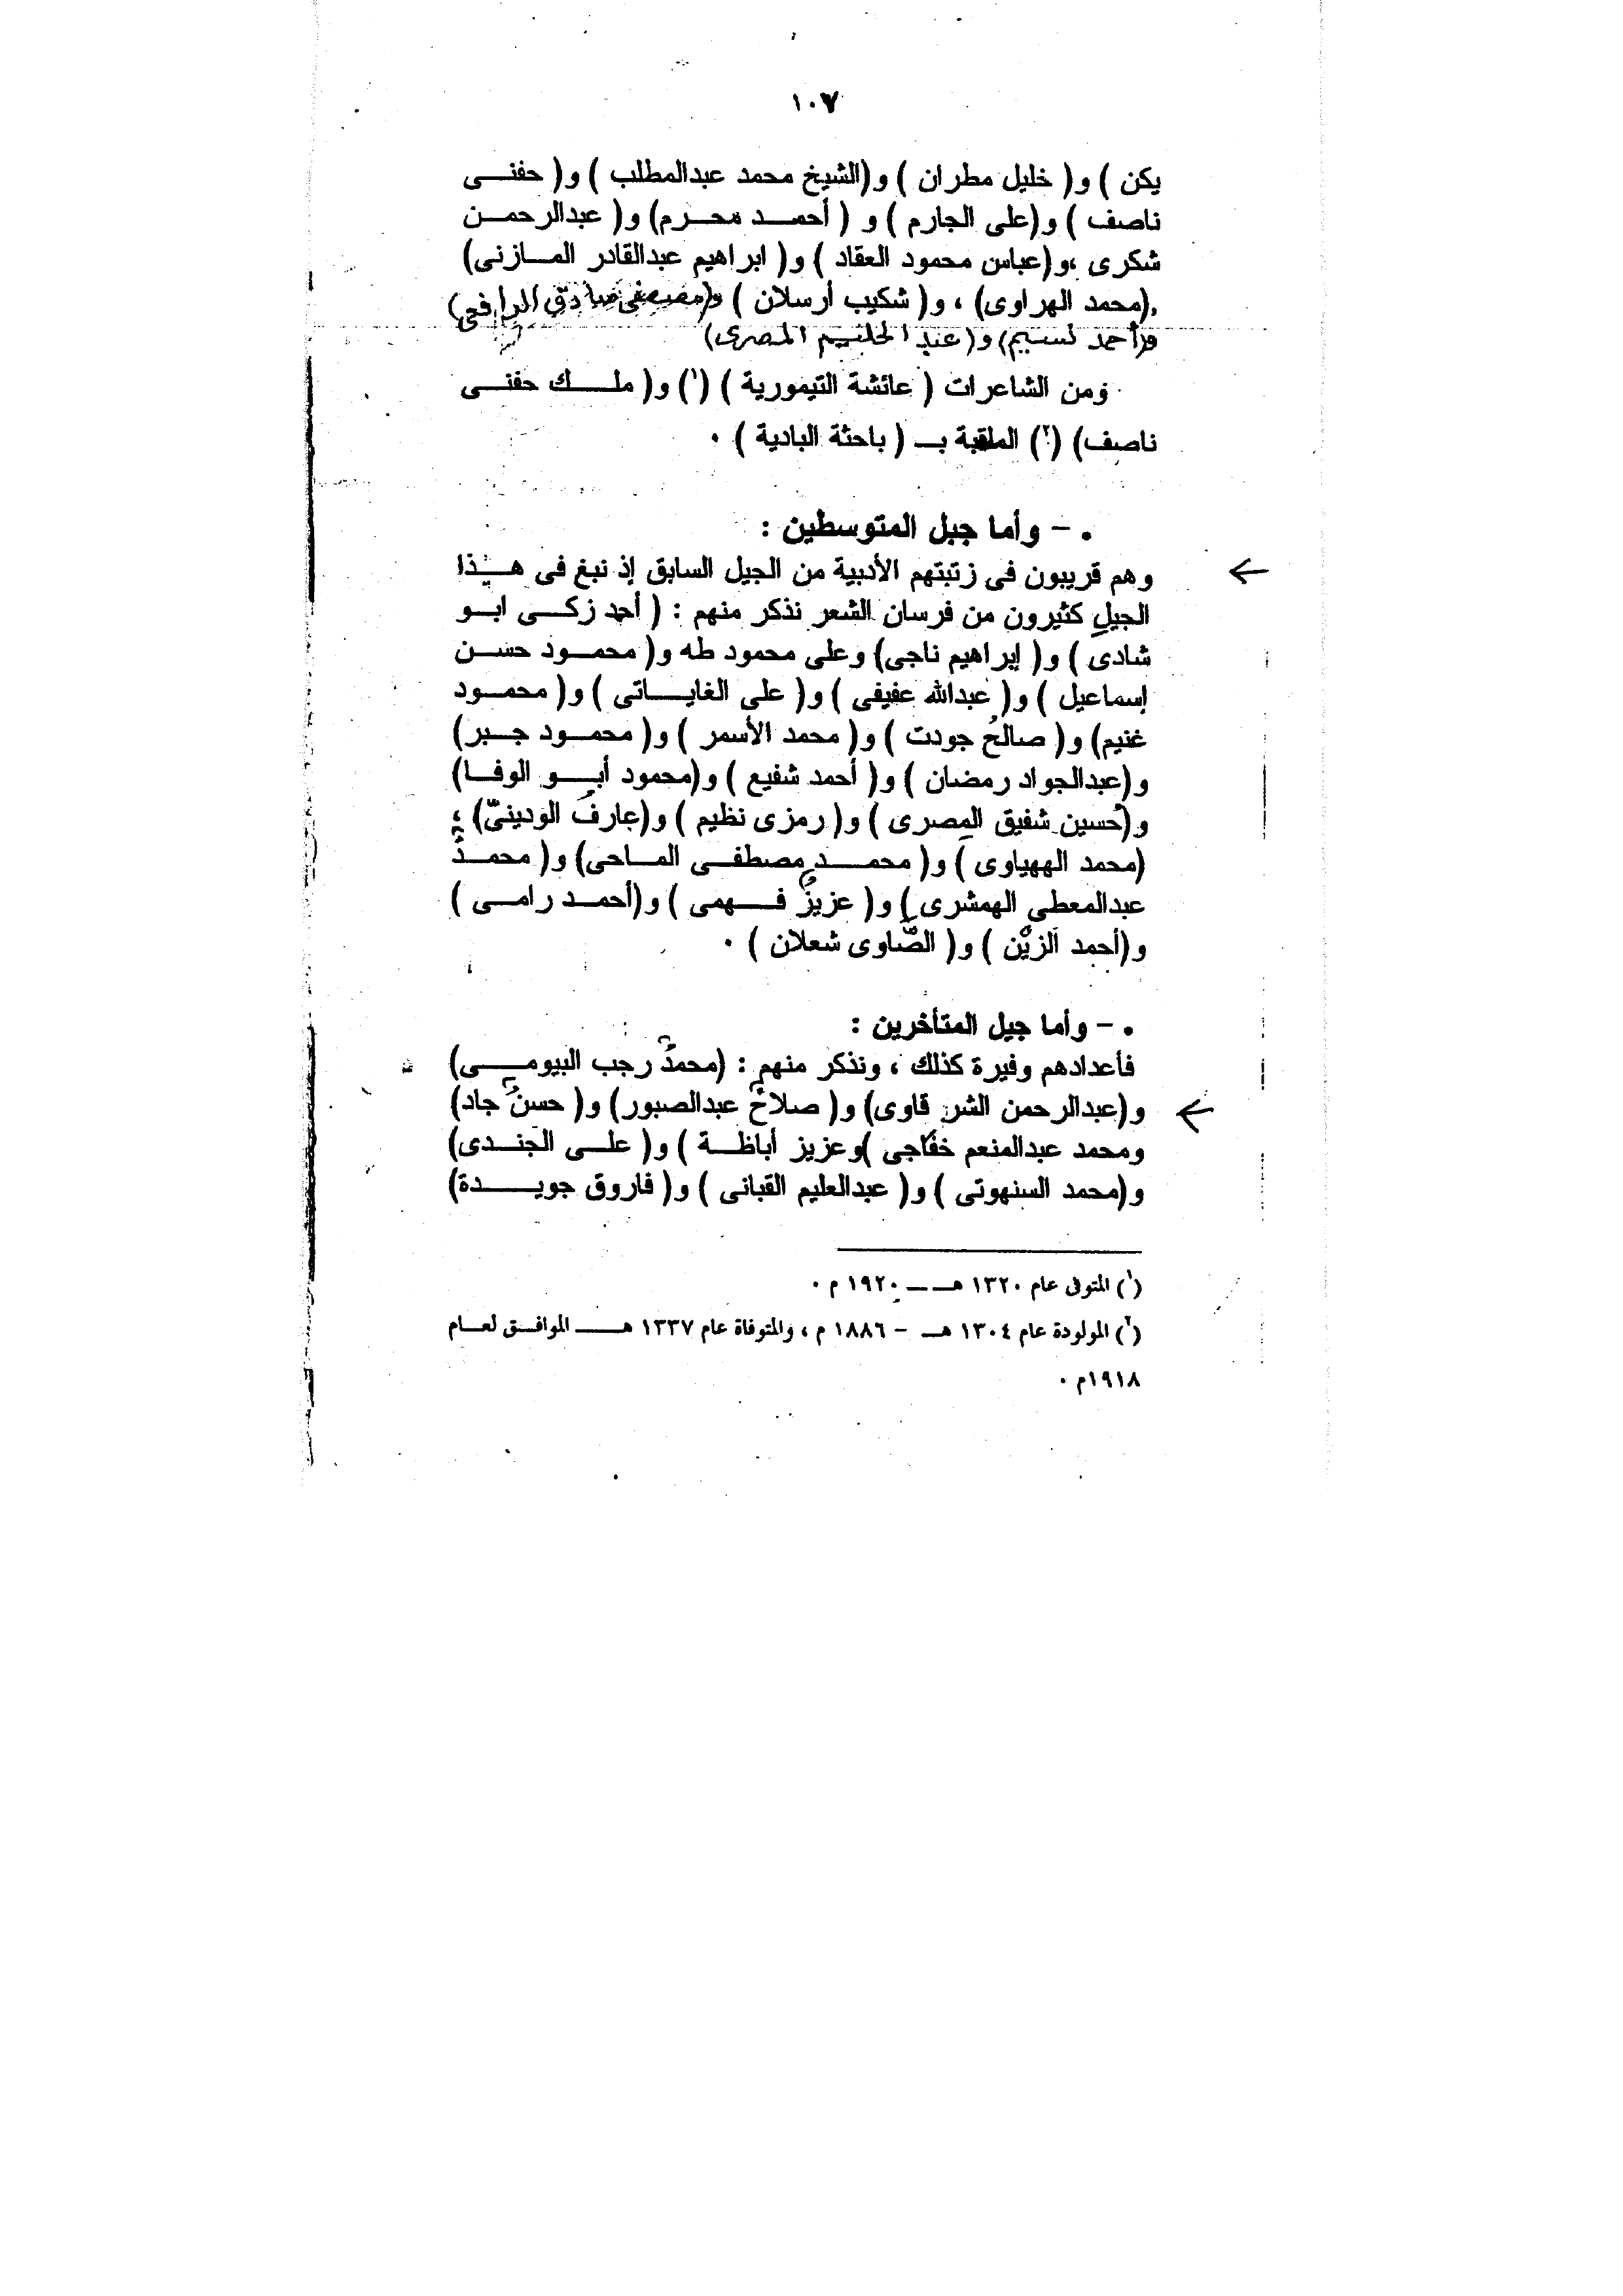 ١٠٧
يكن ) و( خليل مطران ) و(الشيخ محمد عبدالمطلب ) و( حفنى
ناصف ) و(على الجارم ) و ( أحمد محرم) و( عبدالرحمن
شكرى ،و(عباس محمود العقاد ) و( ابراهيم عبدالقادر المازنى)
,(محمد الهراوى) ، و( شكيب أرسلان ) و(مصطفى صادق الرافعى)
و(أحمد نسيم) و(عبد الحليم المصرى)
ومن الشاعرات ( عائشة التيمورية ) (١) و( ملك حفنى
ناصف) (٢) الملقبة بـ ( باحثة البادية ) .
. – وأما جبل المتوسطين :
وهم قريبون فى زتبتهم الأدبية من الجيل السابق إذ نبغ فى هذا
الجيل كثيرون من فرسان الشعر نذكر منهم : ( أحمد زكى ابو
شادى ) و( إبراهيم ناجى) وعلى محمود طه و( محمود حسن
إسماعيل ) و( عبدالله عفيفى ) و( على الغاياتى ) و( محمود
غنيم) و( صالح جودت ) و( محمد الأسمر ) و( محمود جبر)
و(عبدالجواد رمضان ) و( أحمد شفيع ) و(محمود أبو الوفا)
و(حسين شفيق المصرى ) و( رمزى نظيم ) و(عارف الودينىّ) ،
(محمد الههياوى ) و( محمد مصطفى الماحى) و( محمد
عبدالمعطى الهمشرى) و( عزيز فهمى ) و(أحمد رامى )
و(أحمد الزين ) و( الصّاوى شعلان ) .
. – وأما جيل المتأخرين :
فأعدادهم وفيرة كذلك ، ونذكر منهم : (محمد رجب البيومى)
و(عبدالرحمن الشرقاوى) و( صلاح عبدالصبور) و( حسن جاد)
ومحمد عبدالمنعم خفاجى )وعزيز أباظة ) و( على الجندى)
و(محمد السنهوتى ) و( عبدالعليم القبانى ) و( فاروق جويدة)
(١) المتوفى عام ١٣٢٠ هـ – ١٩٢٠ م .
(٢) المولودة عام ١٣٠٤ هـ – ١٨٨٦ م ، والمتوفاة عام ١٣٣٧ هـ الموافق لعام
١٩١٨م .